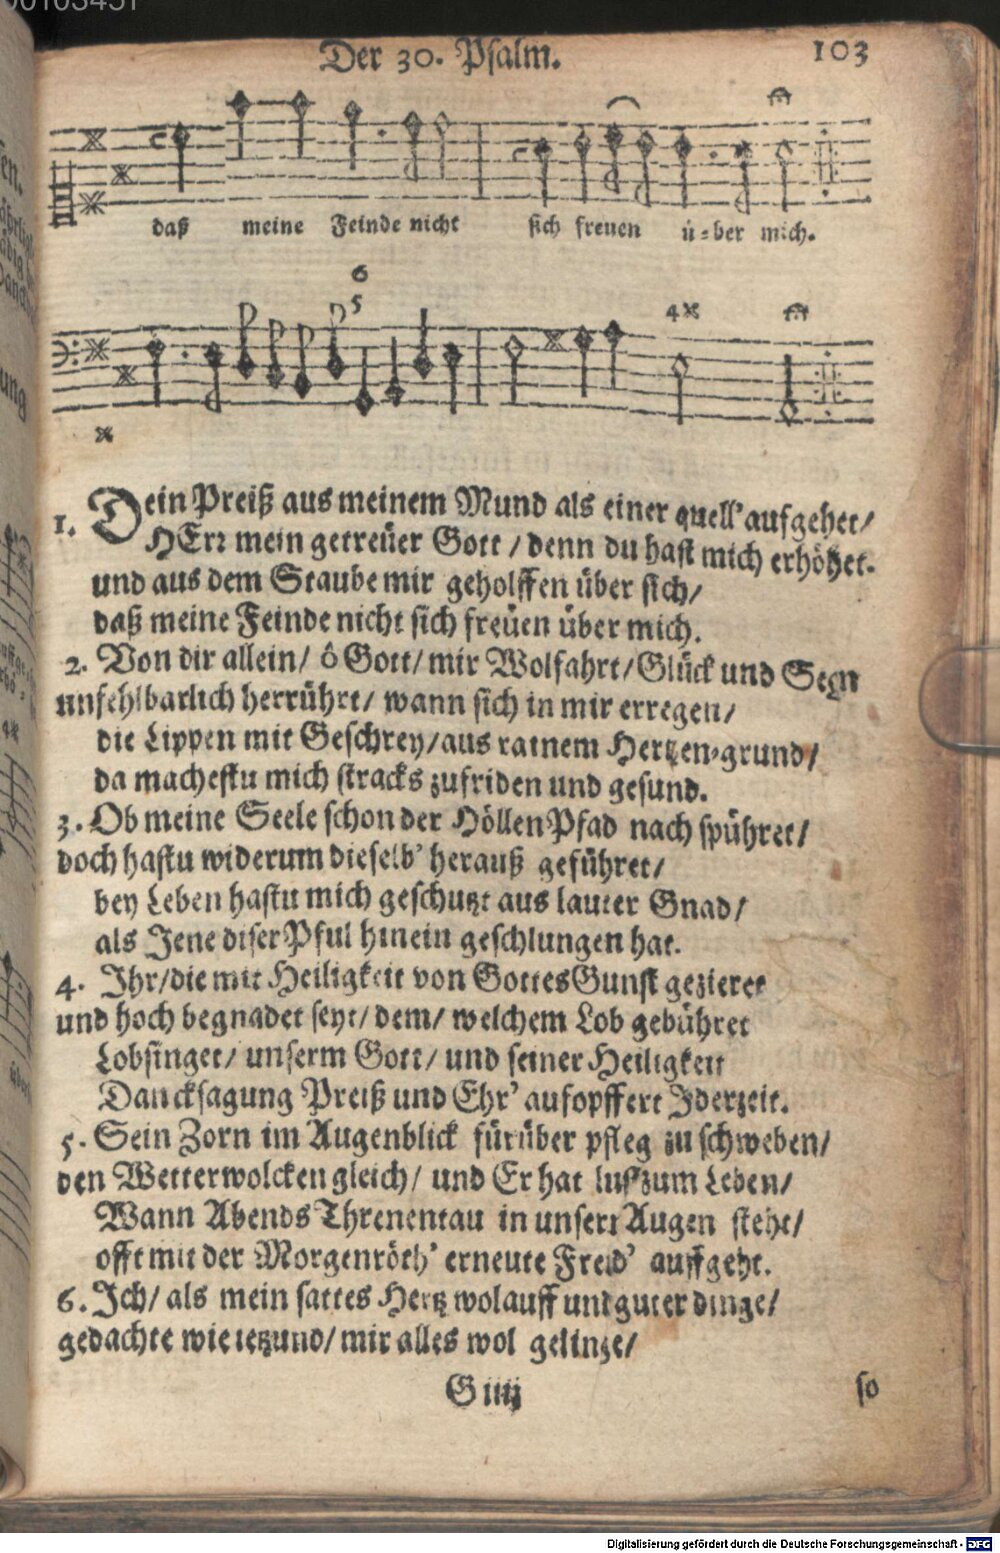 00103451
Der 30. Psalm. 103
daß meine Feinde nicht sich freuen ü-ber mich.
6
5
4
1. Dein Preiß aus meinem Mund als einer quell' aufgehet/
HErr mein getreüer Gott / denn du hast mich erhöhet.
und aus dem Staube mir geholffen über sich/
daß meine Feinde nicht sich freüen über mich.
2. Von dir allein/ ô Gott/ mir Wolfahrt/ Glück und Segn
unfehlbarlich herrührt/ wann sich in mir erregen/
die Lippen mit Geschrey/ aus rainem Hertzen-grund/
da machestu mich stracks zufriden und gesund.
3. Ob meine Seele schon der Höllen Pfad nach spühret/
doch hastu widerum dieselb' herauß geführet/
bey Leben hastu mich geschutzt aus lauter Gnad/
als Jene diser Pful hinein geschlungen hat.
4. Ihr/ die mit Heiligkeit von Gottes Gunst gezieret
und hoch begnadet seyt/ dem/ welchem Lob gebühret
Lobsinget/ unserm Gott/ und seiner Heiligkeit
Dancksagung Preiß und Ehr' aufopffert Jderzeit.
5. Sein Zorn im Augenblick fürüber pfleg zu schweben/
den Wetterwolcken gleich/ und Er hat lust zum Leben/
Wann Abends Threnentau in unsern Augen steht/
offt mit der Morgenröth' erneute Freud' auffgeht.
6. Ich/ als mein sattes Hertz wolauff und guter dinge/
gedachte wie ietzund/ mir alles wol gelinge/
G iiij so
Digitalisierung gefördert durch die Deutsche Forschungsgemeinschaft - DFG